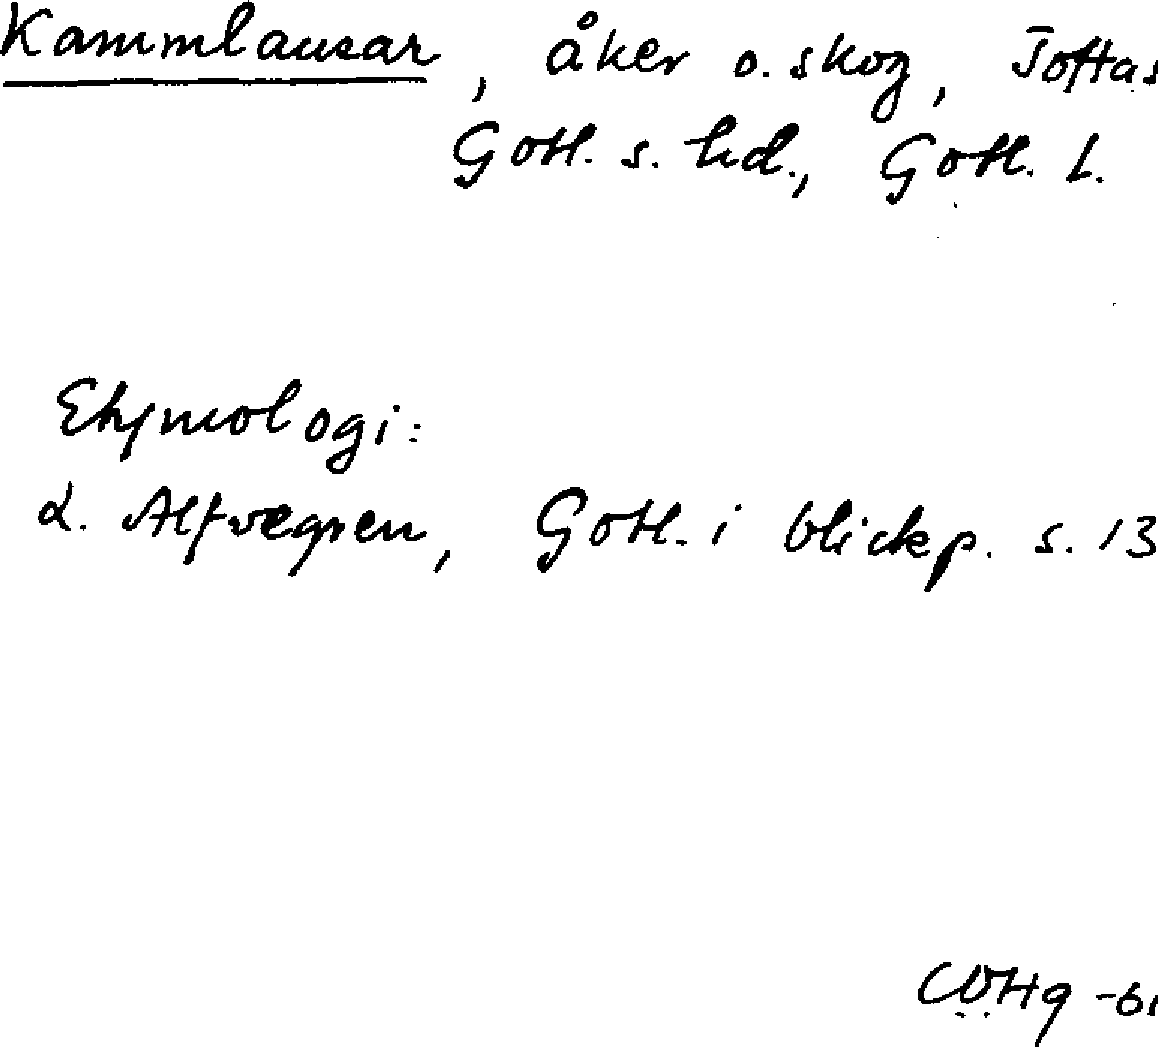 Kammlausar, åker o. skog, Tofta s
Gotl. s. hd., Gotl. L.
Etymologi:
L. Alfvegren, Gotl. i blickp. s. 13